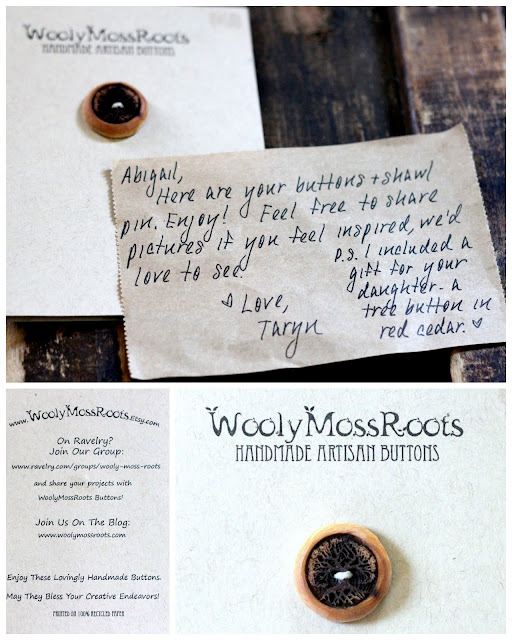 WoolyMossRoots
HANDMADE ARTISAN BUTTONS
Abigail,
Here are your buttons + shawl
pin. Enjoy! Feel free to share
pictures if you feel inspired, we'd
love to see.
♡ Love,
Taryn
P.S. I included a
gift for your
daughter- a
tree button in
red cedar. ♡
www.WoolyMossRoots.Etsy.com
On Ravelry?
Join Our Group:
www.ravelry.com/groups/wooly-moss-roots
and share your projects with
WoolyMossRoots Buttons!
Join Us On The Blog:
www.woolymossroots.com
Enjoy These Lovingly Handmade Buttons.
May They Bless Your Creative Endeavors!
PRINTED ON 100% RECYCLED PAPER
WoolyMossRoots
HANDMADE ARTISAN BUTTONS